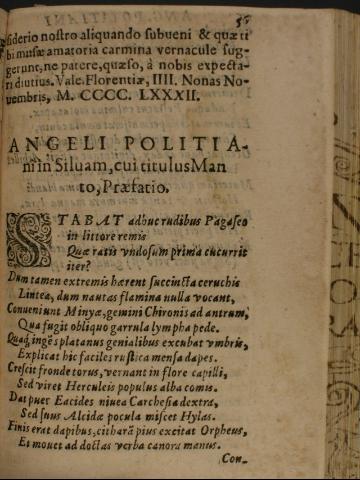 siderio nostro aliquando subueni & quæ ti
bi musæ amatoria carmina vernacule sug-
gerunt, ne patere, quæso, à nobis expecta-
ri diutius. Vale. Florentiæ, IIII. Nonas No-
uembris, M. CCCC. LXXXII.
ANGELI POLITIA-
ni in Siluam, cui titulus Man
to, Præfatio.
STABAT adhuc rudibus Pagaseo
in littore remis
Quæ ratis vndosum prima cucurrit
iter?
Dum tamen extremis hærent succincta ceruchis
Lintea, dum nautas flamina nulla vocant,
Conueniunt Minyæ, gemini Chironis ad antrum,
Qua fugit obliquo garrula lympha pede.
Quaq, ingēs platanus genialibus excubat vmbris,
Explicat hic faciles rustica mensa dapes.
Crescit fronde torus, vernant in flore capilli,
Sed viret Herculeis populus alba comis.
Dat puer Eacides niuea Carchesia dextra,
Sed suus Alcidæ pocula miscet Hylas.
Finis erat dapibus, citharā pius excitat Orpheus,
Et mouet ad doctas verba canora manus.
Con-